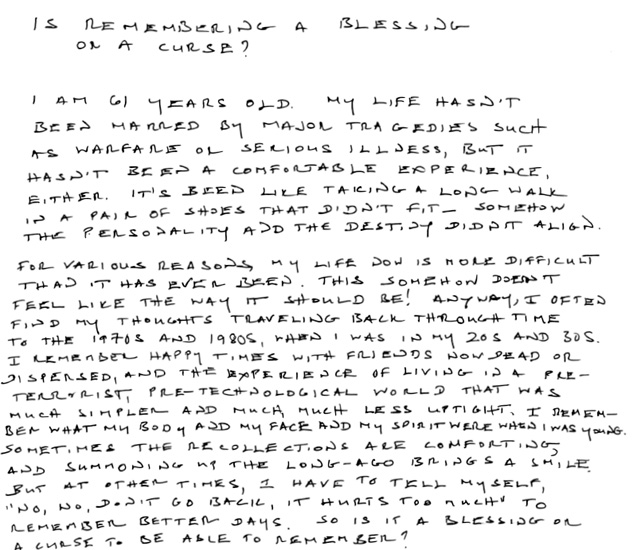 IS REMEMBERING A BLESSING
OR A CURSE?
I AM 61 YEARS OLD. MY LIFE HASN'T
BEEN MARRED BY MAJOR TRAGEDIES SUCH
AS WARFARE OR SERIOUS ILLNESS, BUT IT
HASN'T BEEN A COMFORTABLE EXPERIENCE,
EITHER. IT'S BEEN LIKE TAKING A LONG WALK
IN A PAIR OF SHOES THAT DIDN'T FIT— SOMEHOW
THE PERSONALITY AND THE DESTINY DIDN'T ALIGN.
FOR VARIOUS REASONS, MY LIFE NOW IS MORE DIFFICULT
THAN IT HAS EVER BEEN. THIS SOMEHOW DOESN'T
FEEL LIKE THE WAY IT SHOULD BE! ANYWAY, I OFTEN
FIND MY THOUGHTS TRAVELING BACK THROUGH TIME
TO THE 1970S AND 1980S, WHEN I WAS IN MY 20S AND 30S.
I REMEMBER HAPPY TIMES WITH FRIENDS NOW DEAD OR
DISPERSED, AND THE EXPERIENCE OF LIVING IN A PRE-
TERRORIST, PRE-TECHNOLOGICAL WORLD THAT WAS
MUCH SIMPLER AND MUCH, MUCH LESS UPTIGHT. I REMEM-
BER WHAT MY BODY AND MY FACE AND MY SPIRIT WERE WHEN I WAS YOUNG.
SOMETIMES THE RECOLLECTIONS ARE COMFORTING,
AND SUMMONING UP THE LONG-AGO BRINGS A SMILE.
BUT AT OTHER TIMES, I HAVE TO TELL MYSELF,
"NO, NO, DON'T GO BACK, IT HURTS TOO MUCH" TO
REMEMBER BETTER DAYS. SO IS IT A BLESSING OR
A CURSE TO BE ABLE TO REMEMBER?